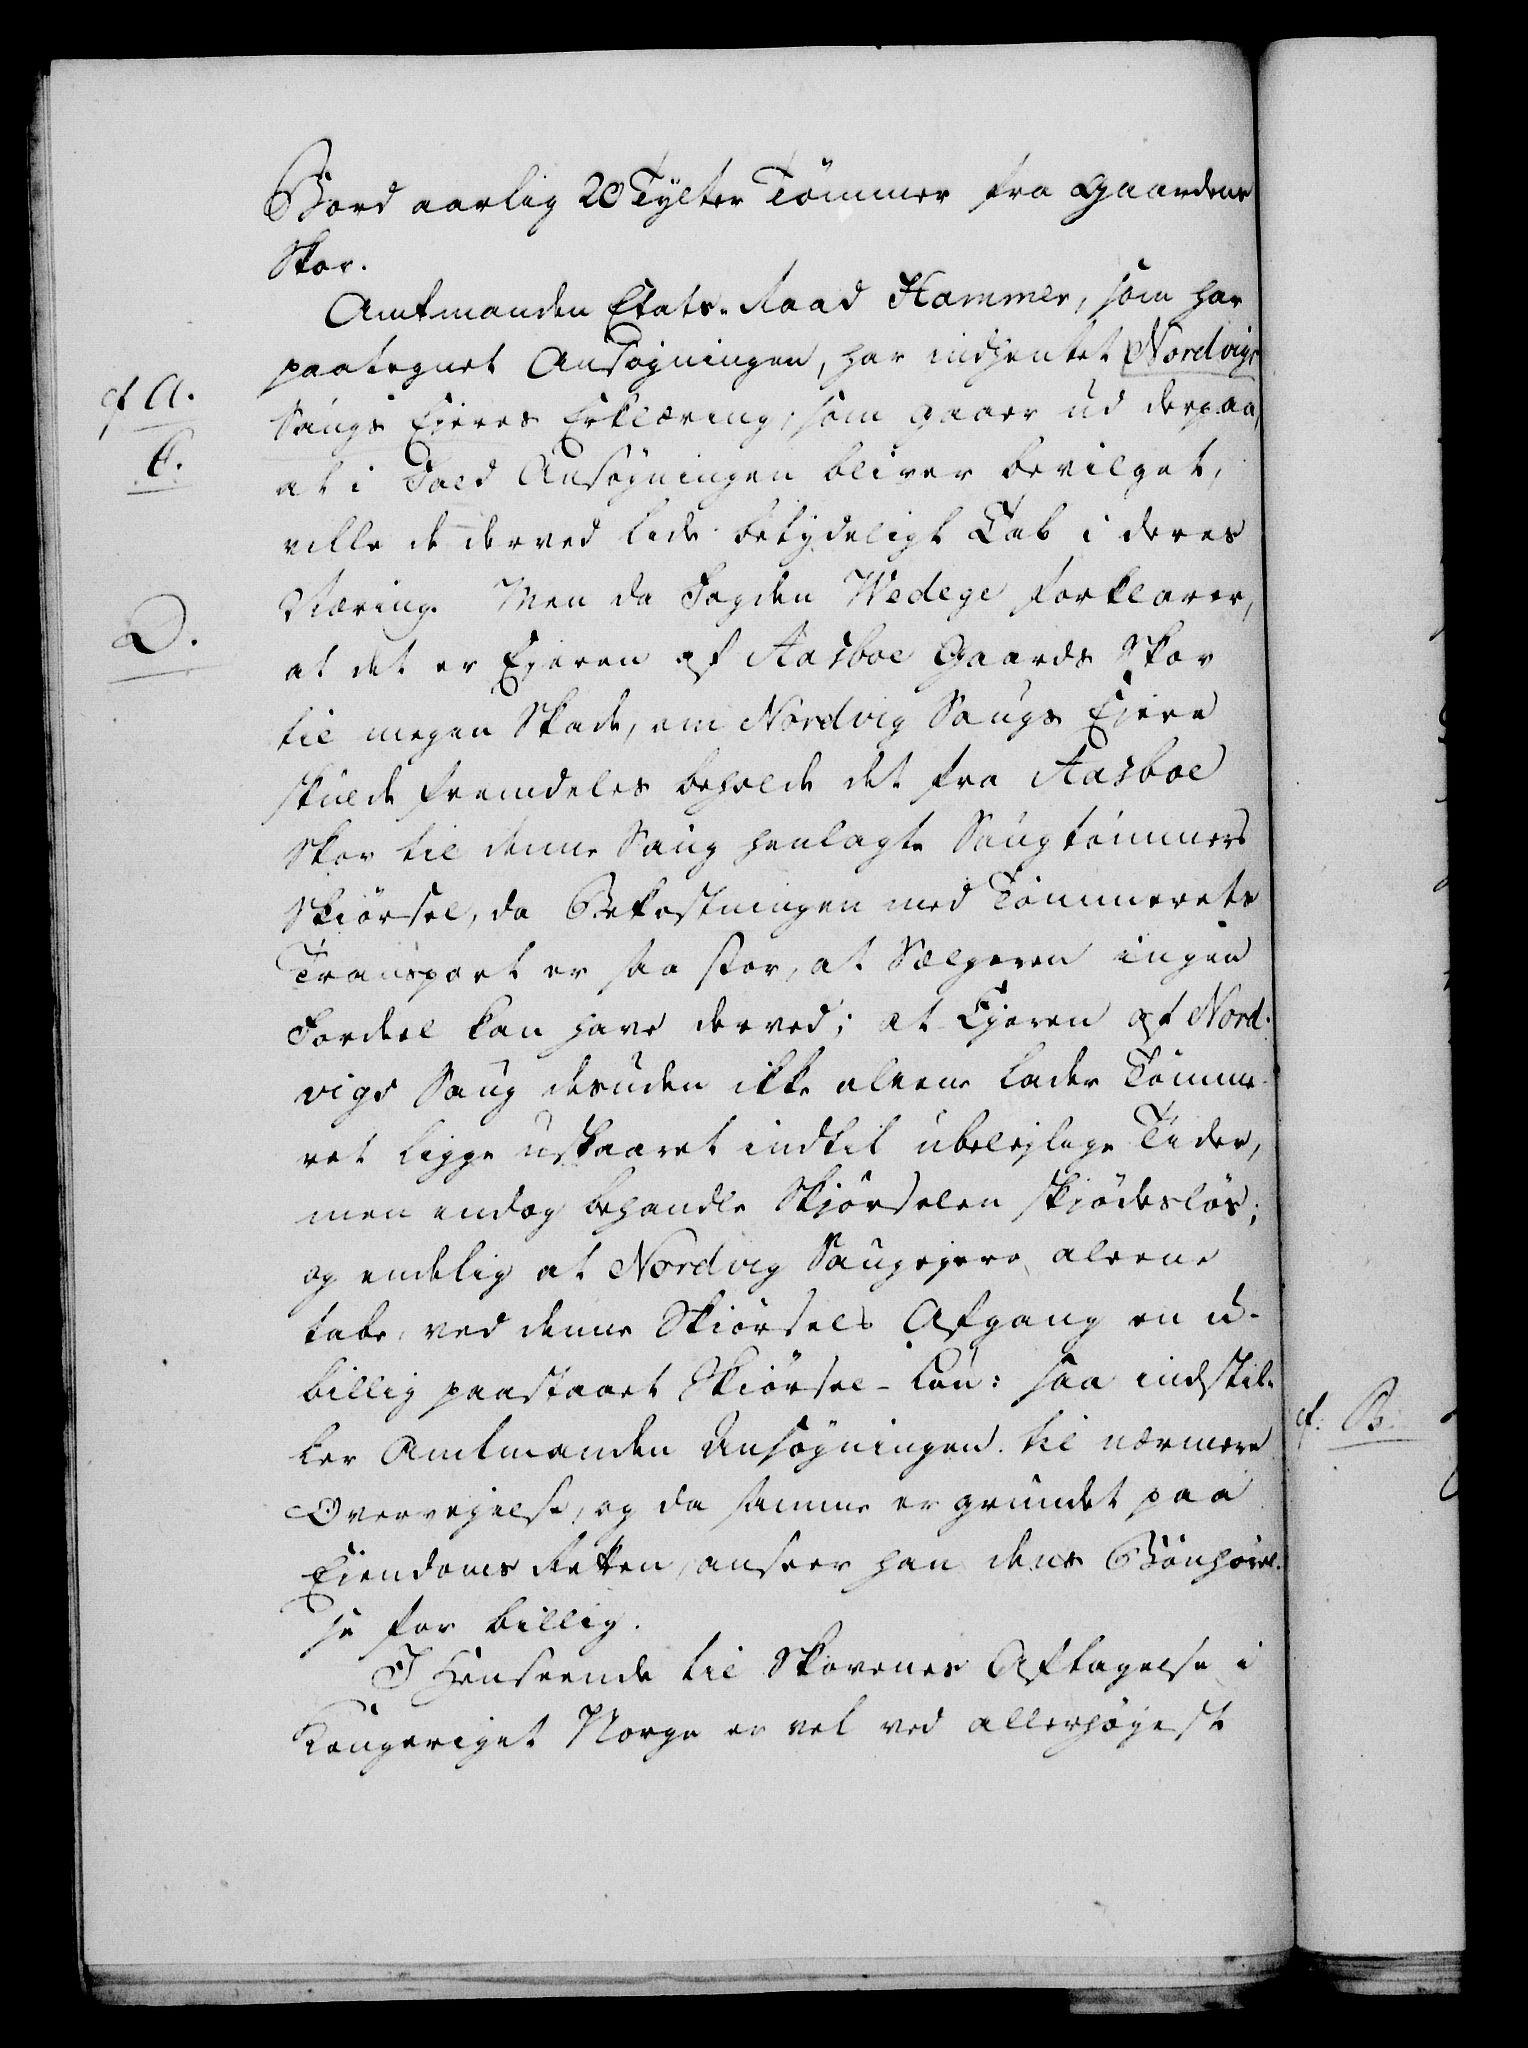 Bord aarlig 20 Tylter Tömmer fra Gaardens
Skov.
Amtmanden Etats-Raad Hammer, som har
paategnet Ansøgningen, har indhentet Nordvigs
cf A.
Saugs Eieres Erklæring, som gaaer ud derpaa,
C.
at i Fald Ansøgningen bliver bevilget,
ville de derved lide betydeligt Tab i deres
Næring. Men da Fogden Wedege forklarer,
D.
at det er Ejeren af Aasboe Gaards Skov
til megen Skade, om Nordvig Saugs Eiere
skulde fremdeles beholde det fra Aasboe
Skov til denne Saug henlagte Saugtømmers
Skiörsel, da Bekostningen med Tömmerets
Transport er saa stor, at Sælgeren ingen
Fordeel kan have derved; at Ejeren af Nord-
vigs Saug desuden ikke alene lader Tömme-
ret ligge uskaaret indtil ubelejlige Tider,
men endog behandle Skjörselen skjödeslös;
og endelig at Nordvig Saugejere alene
tabe, ved denne Skiörsels Afgang en u-
billig paastaaet Skiörsel-Lön: saa indstil-
ler Amtmanden Ansøgningen til nærmere
Overvejelse, og da samme er grundet paa
Eiendoms Retten, anseer han dens Bönhörel-
se for billig.
I Henseende til Skovenes Aftagelse i
Kongeriget Norge er vel ved allerhöjest
cf. B.